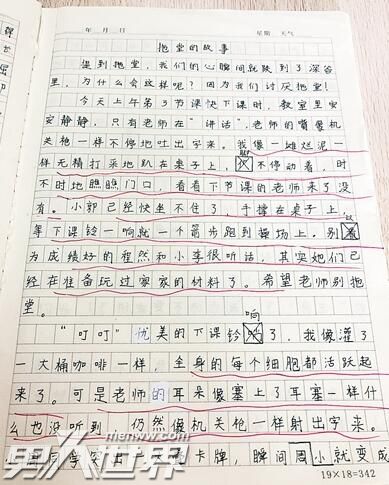 年 月 日 星期 天气
拖堂的故事
提到拖堂，我们的心瞬间就跌到了深谷
里，为什么会这样呢？因为我们讨厌拖堂！
今天上午第3节课快下课时，教室里安
安静静，只有老师在“讲话”，老师的嘴像机
关枪一样不停地吐出字来。我像一堆烂泥一
样无精打采地趴在桌子上，不停动着，时
不时地瞧瞧门口，看看下节课的老师来了没
有。小郭已经快坐不住了，手撑在桌子上，
等下课铃一响就一个箭步跑到操场上。别
为成绩好的程然和小李很听话，其实她们已
经在准备玩过家家的材料了。希望老师别拖
堂。
响
“叮叮”优美的下课铃了，我像灌了
一大桶咖啡一样，全身的每个细胞都活跃起
来了。可是老师的耳朵像塞上了耳塞一样什
么也没听到，仍然像机关枪一样射出字来。
周同学 出 卡牌，瞬间周小就变成
男人世界
menww.com
19×18=342